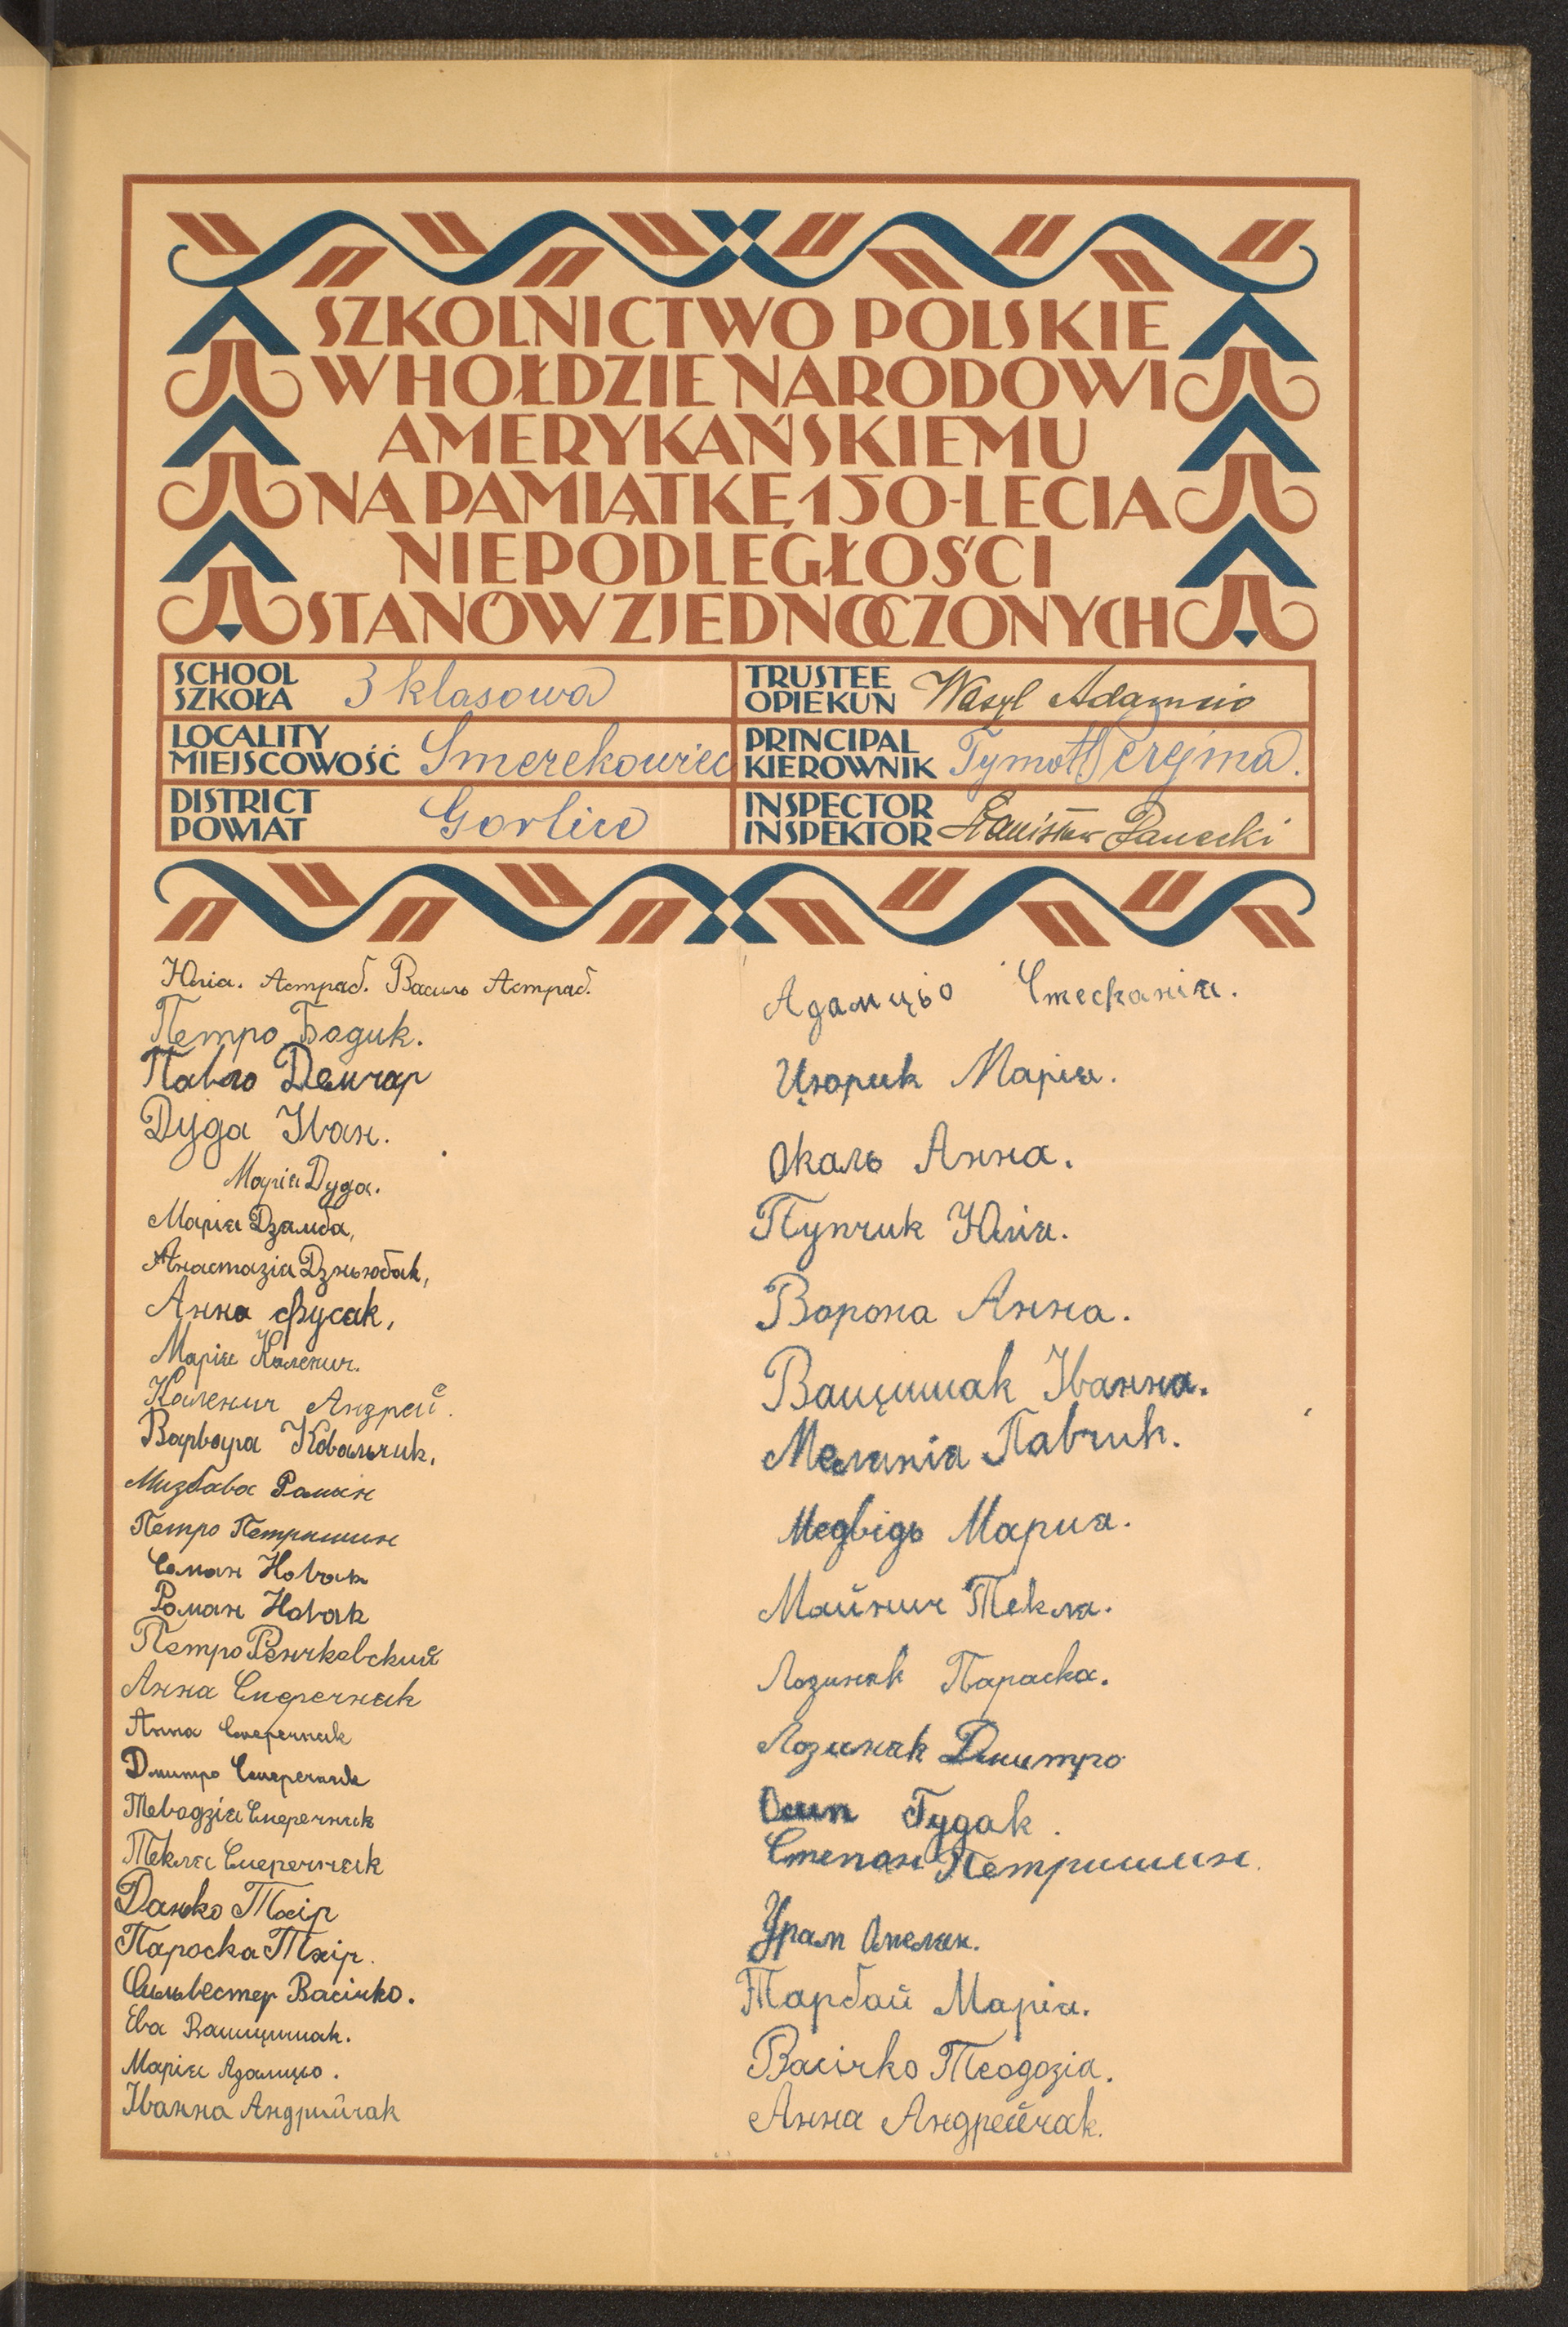 SZKOLNICTWO POLSKIE
W HOŁDZIE NARODOWI
AMERYKAŃSKIEMU
NA PAMIĄTKĘ 150-LECIA
NIEPODLEGŁOŚCI
STANÓW ZJEDNOCZONYCH
SCHOOL
SZKOŁA 3 klasowa
TRUSTEE
OPIEKUN Wasyl Adamcio
LOCALITY
MIEJSCOWOŚĆ Smerekowiec
PRINCIPAL
KIEROWNIK Tymot Perejma.
DISTRICT
POWIAT Gorlice
INSPECTOR
INSPEKTOR Stanisław Panecki
Юлія. Астраб. Василь Астраб.
Петро Бодик.
Павло Демчар
Дуда Іван.
Марія Дуда.
Марія Дзямба,
Анастазія Дзюбак,
Анна Фусак,
Марія Каленич.
Каленич Андрей.
Варвара Ковальчик,
Роман
Петро Петришин
Семан Новак
Роман Новак
Петро Ренчковский
Анна Смеречняк
Анна Смеречняк
Дмитро Смеречняк
Смеречняк
Текля Смеречняк
Данко Тхір
Пароска Тхір.
Сильвестер Васічко.
Ева Ващишак.
Марія Адамцьо.
Іванна Андрийчак
Адамцьо Стефанія.
Цюрик Марія.
Окаль Анна.
Пупчик Юлія.
Ворона Анна.
Ващишак Іванна.
Меланія Павчик.
Медвідь Мария.
Майнич Текля.
Лозиняк Параска.
Лозиняк Дмитро
Осип Гудак.
Степан Петришин.
Урам Омелян.
Тарбай Марія.
Васічко Теодозія.
Анна Андрейчак.